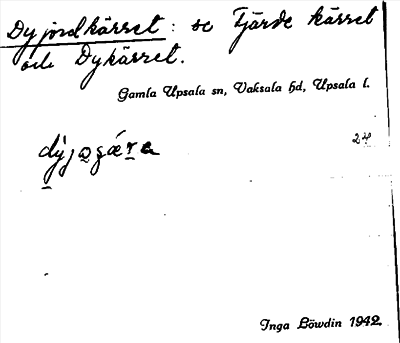 Dyjordkärret : se Fjärde kärret
och Dykärret.
Gamla Upsala sn, Vaksala hd, Upsala l.
24
Inga Löwdin 1942.